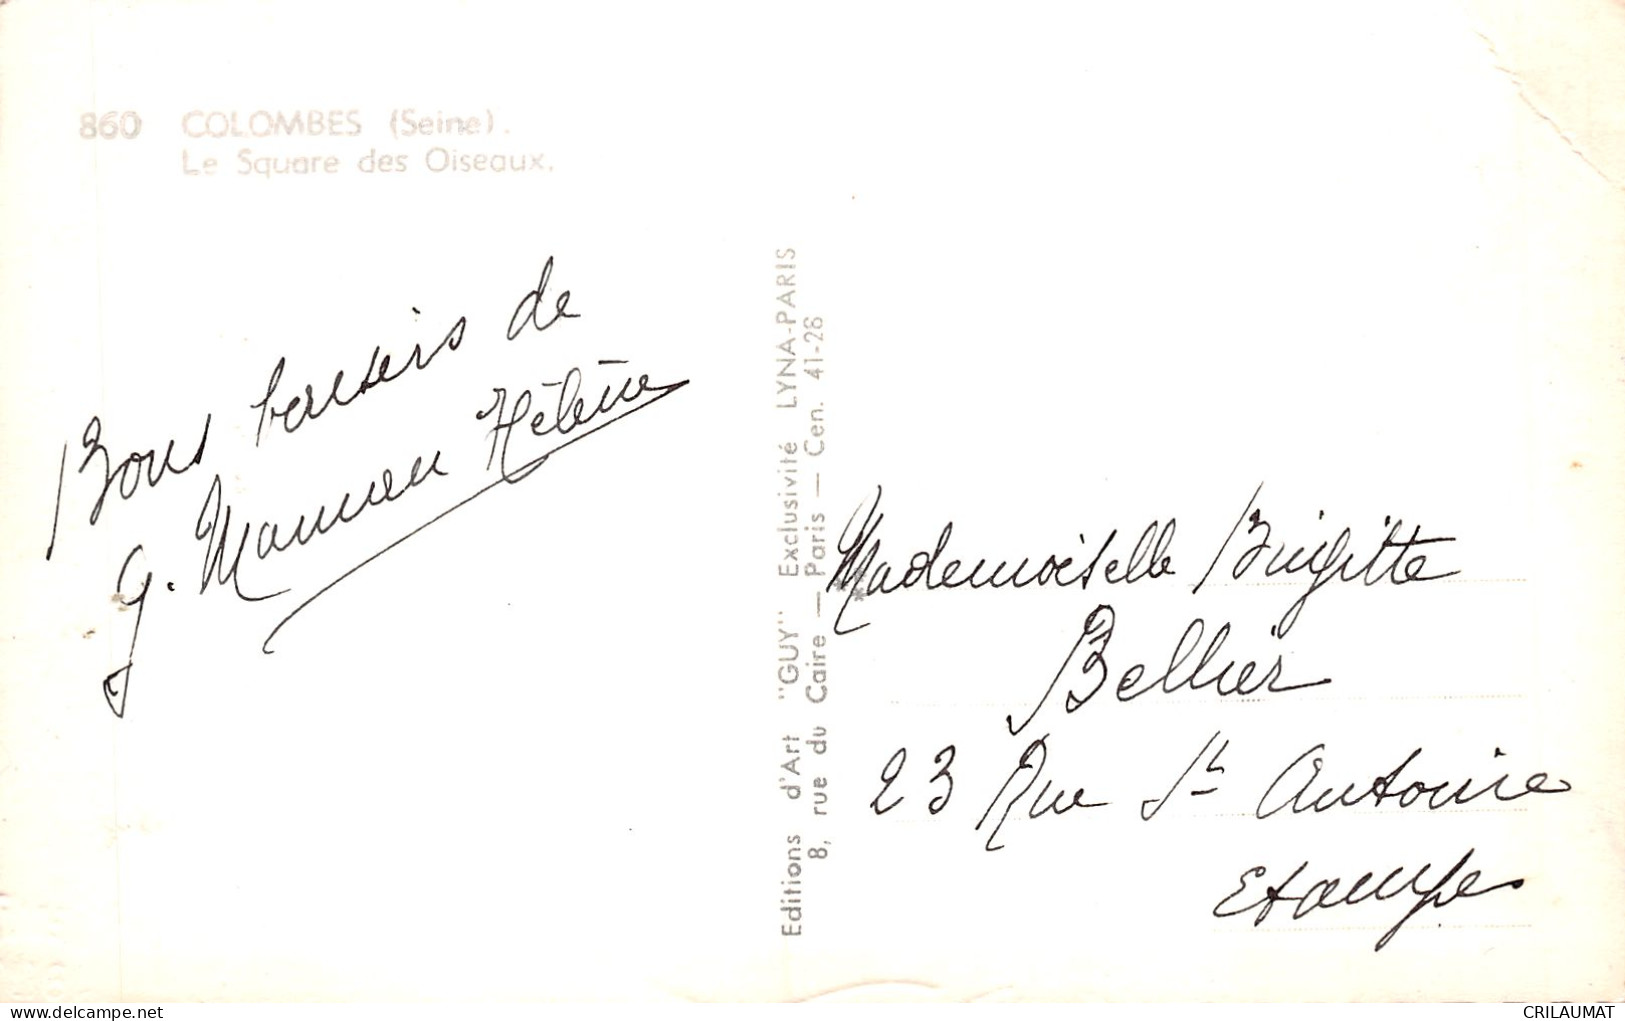 860 COLOMBES (Seine).
Le Square des Oiseaux.
Bons baisers de
G. Maman Hélène
Editions d'Art "GUY" Exclusivité LYNA-PARIS
8, rue du Caire — Paris — Cen. 41-28
Mademoiselle Brigitte
Bellier
23 Rue St Antoine
Etampes
delcampe.net
CRILAUMAT